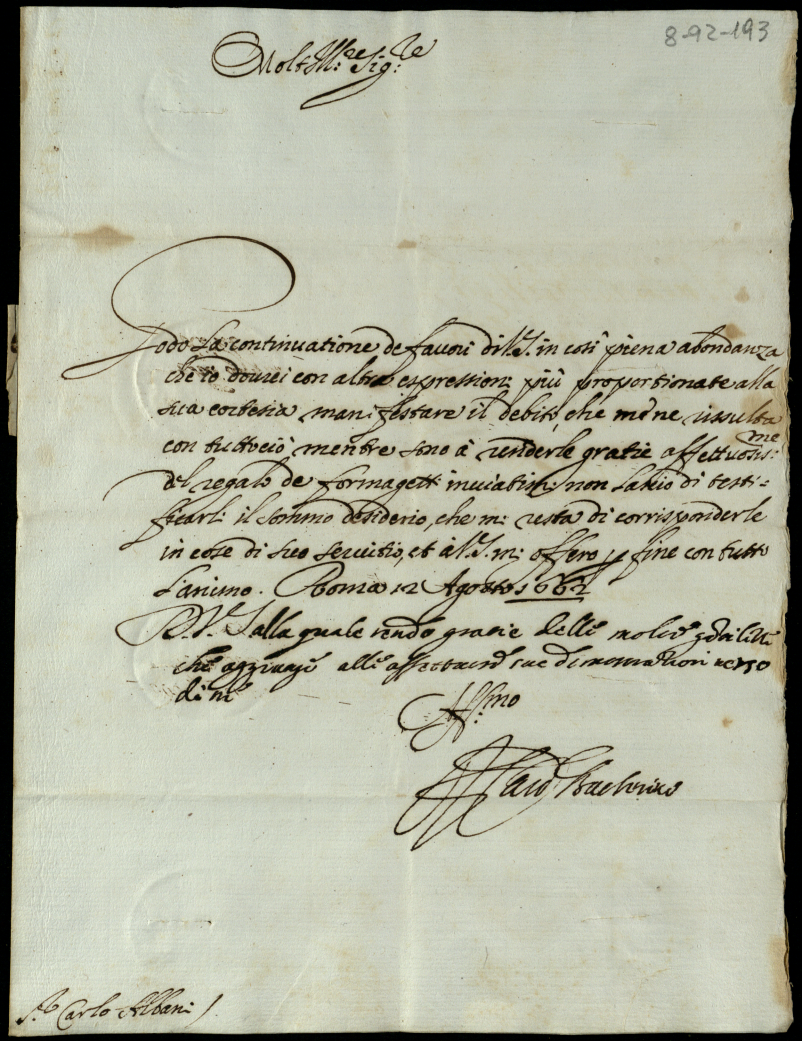 8-92-193
Molt Ill:re Sig:re
Godo la continuatione de favori di V.S. in così piena abondanza
che io dovrei con altre espressioni più proportionate alla
sua cortesia manifestare il debito, che me ne risulta
con tuttociò mentre sono à renderle gratie affettuosis:me
del regalo de formagetti inviatimi non lascio di testi=
ficarli il sommo desiderio, che mi resta di corrisponderle
in cose di suo servitio, et à V.S. mi offero per fine con tutto
l'animo. Roma 12 Agosto 1662
D. V. S. alla quale rendo gratie delle
che aggiunge alle affettuose sue dimostrationi verso
di me
Aff:mo
S.r Carlo Albani